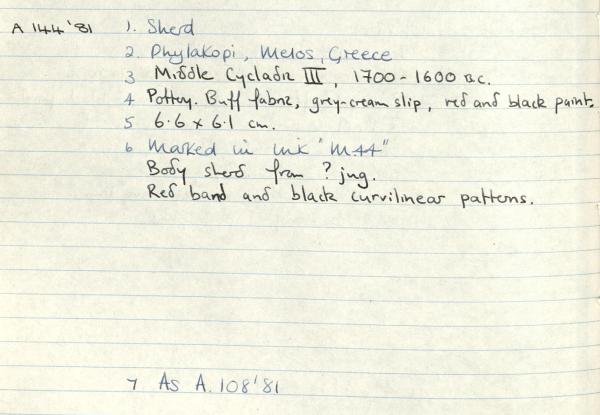 A 144'81 1. Sherd
2. Phylakopi, Melos, Greece
3 Middle Cycladic III, 1700-1600 B.C.
4 Pottery. Buff fabric, grey-cream slip, red and black paint.
5 6.6 x 6.1 cm.
6 Marked in ink "M.44"
Body sherd from ? jug.
Red band and black curvilinear patterns.
7 As A.108'81